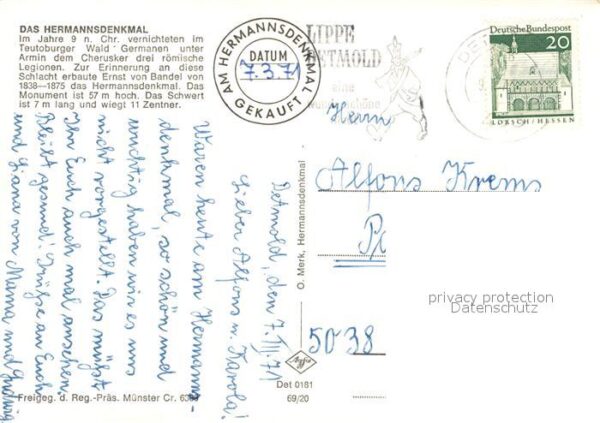 DAS HERMANNSDENKMAL
Im Jahre 9 n. Chr. vernichteten im
Teutoburger Wald Germanen unter
Armin dem Cherusker drei römische
Legionen. Zur Erinnerung an diese
Schlacht erbaute Ernst von Bandel von
1838—1875 das Hermannsdenkmal. Das
Monument ist 57 m hoch. Das Schwert
ist 7 m lang und wiegt 11 Zentner.
AM HERMANNSDENKMAL
DATUM
7.3.71
GEKAUFT
LIPPE
DETMOLD
eine
wunderschöne
Deutsche Bundespost
20
LORSCH/HESSEN
Herrn
Alfons Krems
5038
privacy protection
Datenschutz
Detmold, den 7. III. 71
Lieber Alfons u. Karola!
Waren heute am Hermanns-
denkmal, so schön und
wuchtig haben wir es uns
nicht vorgestellt. Das müßt
Ihr Euch auch mal ansehen.
Bleibt gesund! Grüße an Euch
und von Mama und
O. Merk, Hermannsdenkmal
Agfa
Det 0181
69/20
Freigeg. d. Reg.-Präs. Münster Cr.